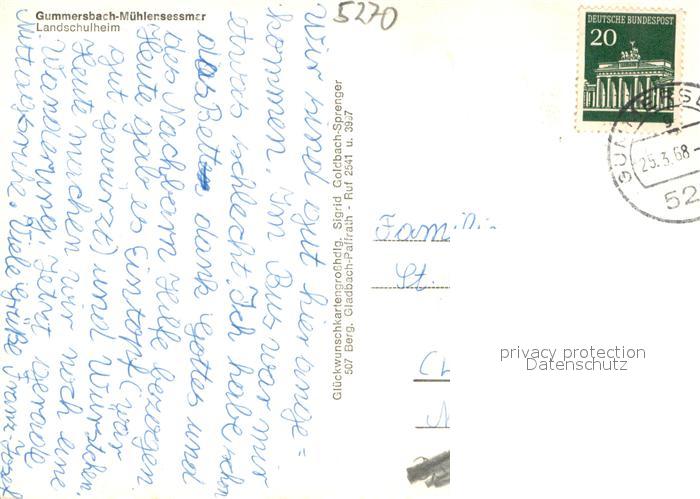 Gummersbach-Mühlensessmar
Landschulheim
5270
DEUTSCHE BUNDESPOST
20
25.3.68
52
Wir sind gut hier ange=
kommen. Im Bus war mir
etwas schlecht. Ich habe schon
das Bett dank Gottes und
des Nachbarn Hilfe bezogen.
Heute gab es Eintopf (war
gut gewürzt) und Würstchen.
Heute machen wir noch eine
Wanderung. Jetzt gerade
Mittagsruhe. Viele Grüße Franz-Josef
Glückwunschkartengroßhdlg. Sigrid Goldbach-Sprenger
507 Berg. Gladbach-Paffrath - Ruf 2541 u. 3997
Famili
St.
privacy protection
Datenschutz